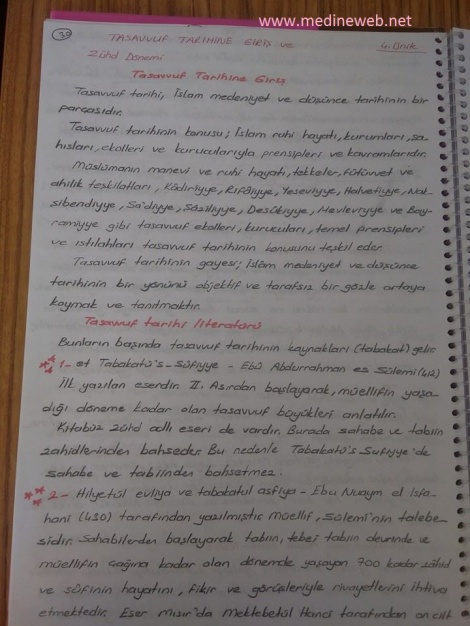 www.medineweb.net
39
TASAVVUF TARİHİNE GİRİŞ ve
4. Ünik
Zühd Dönemi
Tasavvuf Tarihine Giriş
Tasavvuf tarihi, İslam medeniyet ve düşünce tarihinin bir
parçasıdır.
Tasavvuf tarihinin konusu; İslam ruhi hayatı, kurumları, şa-
hısları, ekolleri ve kurucularıyla prensipleri ve kavramlarıdır.
Müslümanın manevi ve ruhi hayatı, tekkeler, fütüvvet ve
ahilik teşkilatları, Kâdiriyye, Rifâiyye, Yeseviyye, Halvetiyye, Nak-
şibendiyye, Sa'diyye, Şâziliyye, Desûkiyye, Mevleviyye ve Bay-
ramiyye gibi tasavvuf ekolleri, kurucuları, temel prensipleri
ve ıstılahları tasavvuf tarihinin konusunu teşkil eder.
Tasavvuf tarihinin gayesi; İslâm medeniyet ve düşünce
tarihinin bir yönünü objektif ve tarafsız bir gözle ortaya
koymak ve tanıtmaktır.
Tasavvuf tarihi literatürü
Bunların başında tasavvuf tarihinin kaynakları (tabakat) gelir.
1- et Tabakatü's-Sûfiyye - Ebû Abdurrahman es Sülemi (412)
İlk yazılan eserdir. II. Asırdan başlayarak, müellifin yaşa-
dığı döneme kadar olan tasavvuf büyükleri anlatılır.
Kitabüz zühd adlı eseri de vardır. Burada sahabe ve tabiin
zahidlerinden bahseder. Bu nedenle Tabakatü's Sufiyye'de
sahabe ve tabiinden bahsetmez.
2- Hilyetül evliya ve tabakatul asfiya - Ebu Nuaym el Isfa-
hani (430) tarafından yazılmıştır. Müellif, Sülemi'nin talebe-
sidir. Sahabilerden başlayarak tabiin, tebei tabiin devrinde ve
müellifin çağına kadar olan dönemde yaşayan 700 kadar zâhid
ve sûfinin hayatını, fikir ve görüşleriyle rivayetlerini ihtiva
etmektedir. Eser Mısır'da Mektebetül Hanci tarafından on cilt